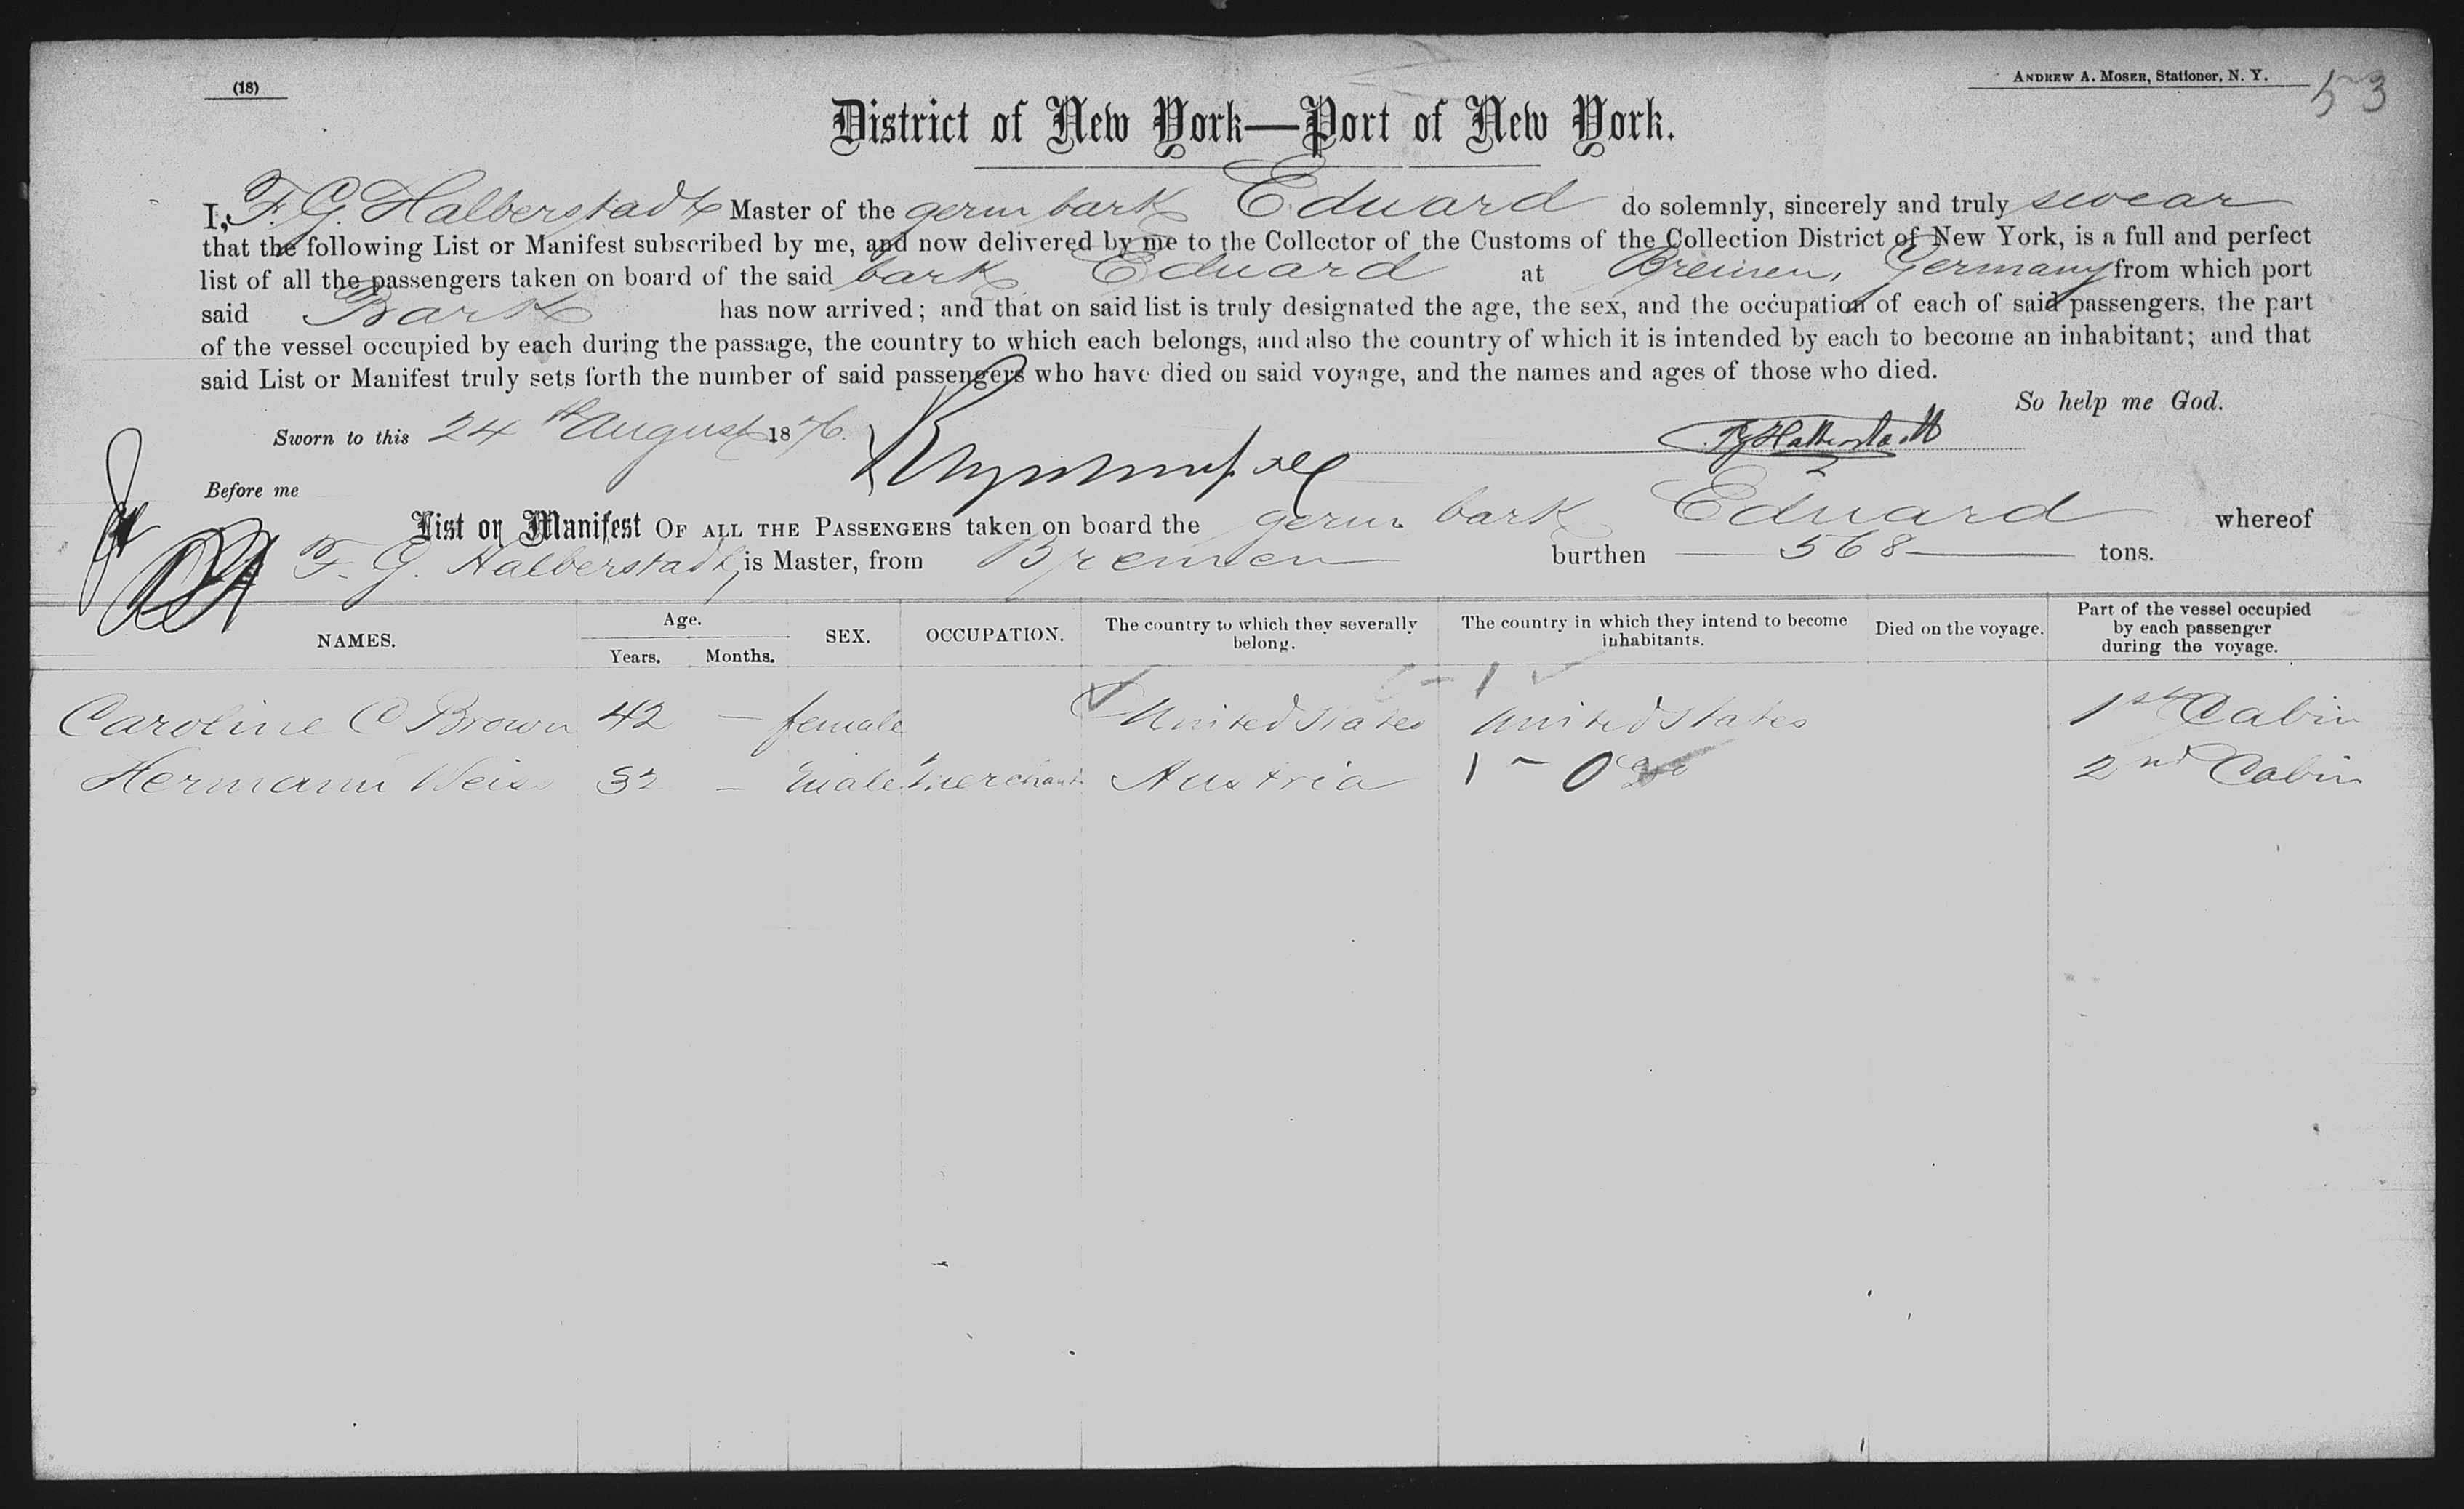 (18)
ANDREW A. MOSER, Stationer, N. Y.
53
District of New York—Port of New York.
I, F. G. Halberstadt Master of the germ bark Eduard do solemnly, sincerely and truly swear
that the following List or Manifest subscribed by me, and now delivered by me to the Collector of the Customs of the Collection District of New York, is a full and perfect
list of all the passengers taken on board of the said bark Eduard at Bremen, Germany from which port
said Bark has now arrived; and that on said list is truly designated the age, the sex, and the occupation of each of said passengers, the part
of the vessel occupied by each during the passage, the country to which each belongs, and also the country of which it is intended by each to become an inhabitant; and that
said List or Manifest truly sets forth the number of said passengers who have died on said voyage, and the names and ages of those who died.
So help me God.
Sworn to this 24th August 1876.
F G Halberstadt
Before me
List or Manifest OF ALL THE PASSENGERS taken on board the germ bark Eduard whereof
F. G. Halberstadt, is Master, from Bremen burthen 568 tons.
NAMES. Age. Years. Months. SEX. OCCUPATION. The country to which they severally belong. The country in which they intend to become inhabitants. Died on the voyage. Part of the vessel occupied by each passenger during the voyage.
- 1
Caroline C Brown 42 — female United States United States 1st Cabin
Hermann Weiss 32 — male merchant Austria 1 - 0 do 2nd Cabin